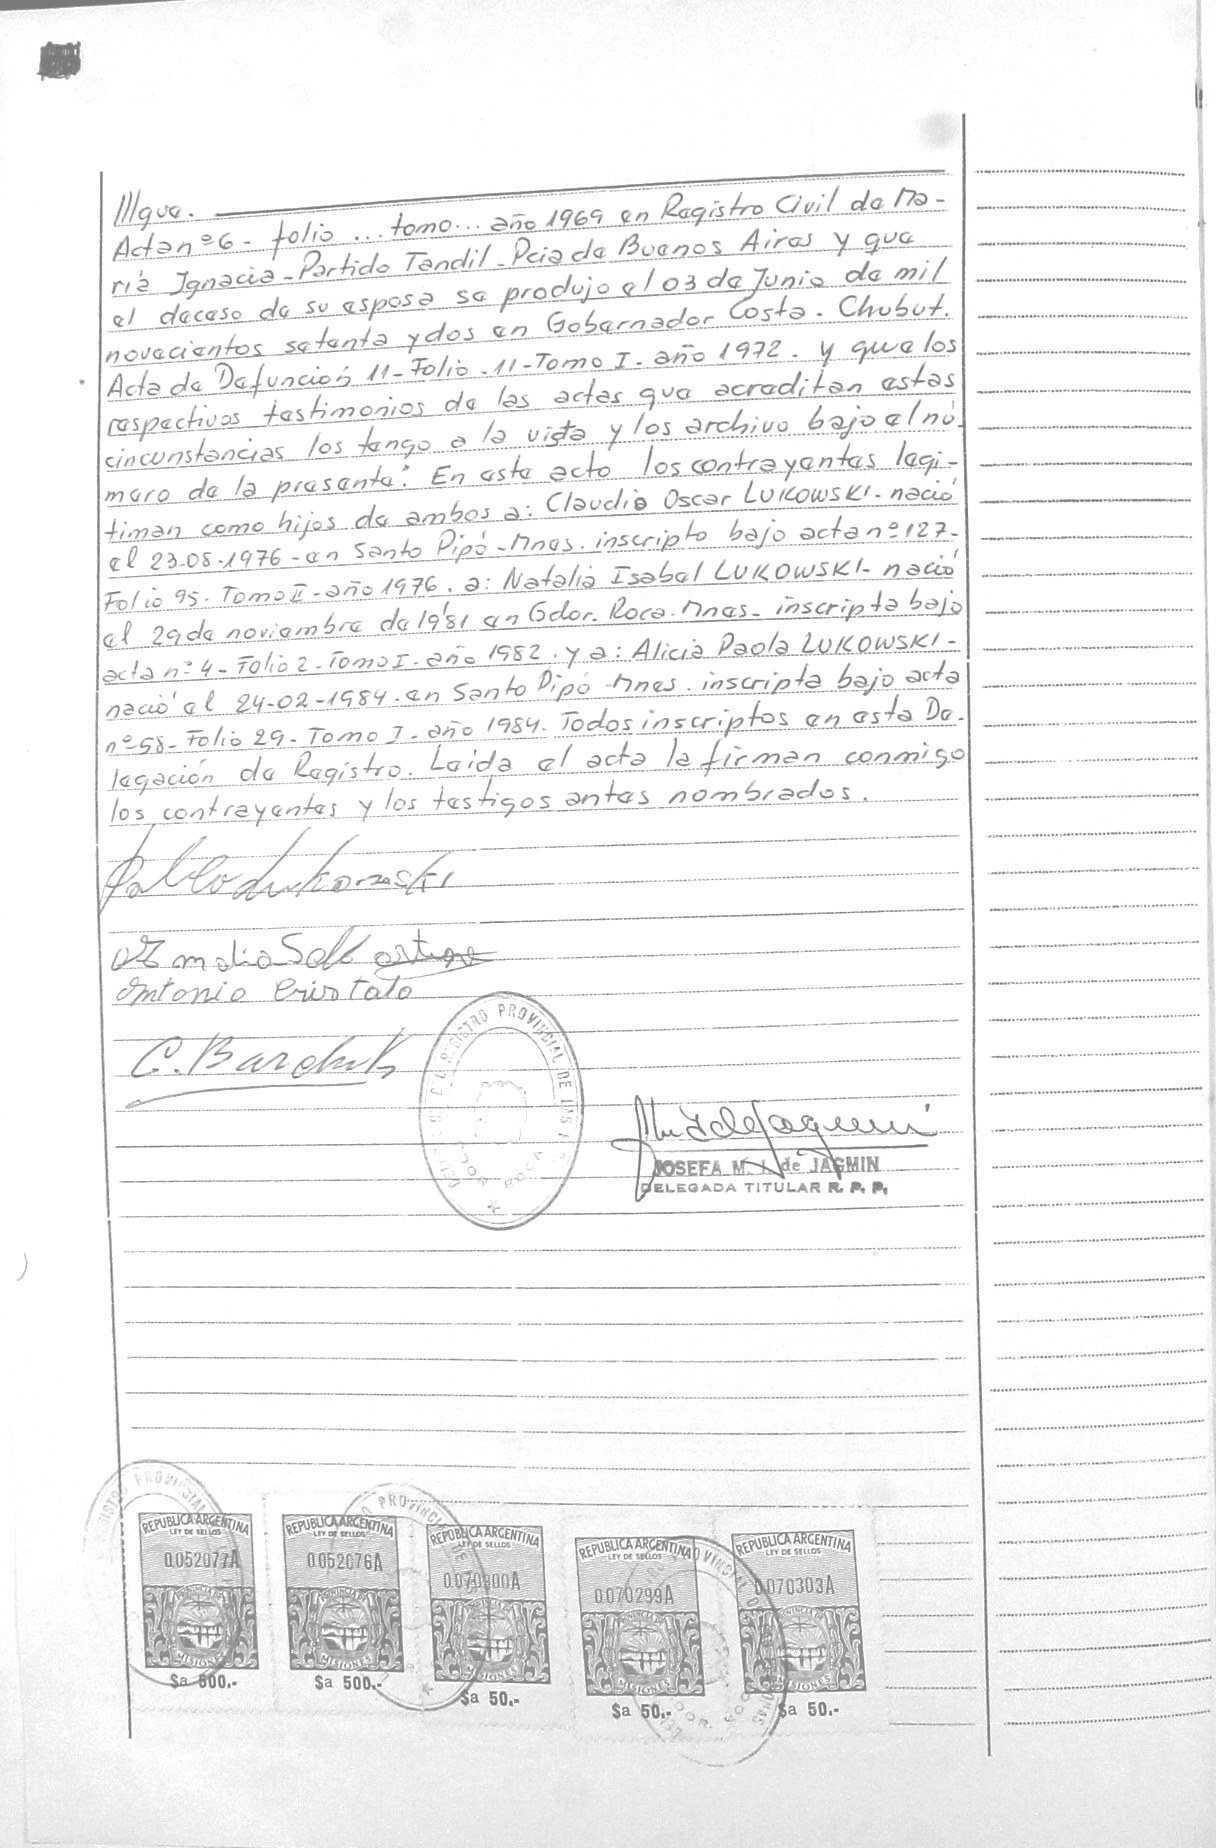 lllgue.
Acta nº6- folio ... tomo... año 1969 en Registro Civil de Ma-
ría Ignacia-Partido Tandil-Pcia de Buenos Aires y que
el deceso de su esposa se produjo el 03 de Junio de mil
novecientos setenta y dos en Gobernador Costa. Chubut.
Acta de Defunción 11-Folio-11-Tomo I. año 1972. y que los
respectivos testimonios de las actas que acreditan estas
circunstancias los tengo a la vista y los archivo bajo el nú-
mero de la presente." En este acto los contrayentes legi-
timan como hijos de ambos a: Claudio Oscar LUKOWSKI-nació
el 23-08-1976-en Santo Pipó-Mnes. inscripto bajo acta nº127-
Folio 95. Tomo II-año 1976. a: Natalia Isabel LUKOWSKI-nació
el 29 de noviembre de 1981 en Gdor. Roca.Mnes- inscripta bajo
acta nº4-Folio 2-Tomo I-año 1982. y a: Alicia Paola LUKOWSKI-
nació el 24-02-1984-en Santo Pipó-Mnes. inscripta bajo acta
nº58-Folio 29-Tomo I-año 1984. Todos inscriptos en esta De-
legación de Registro. Leída el acta la firman conmigo
los contrayentes y los testigos antes nombrados.
Pablo Lukowski
Antonio Cristaldo
C. Barchuk
REGISTRO PROVINCIAL DE LAS
JOSEFA M. J. de JAGMIN
DELEGADA TITULAR R. P. P.
REPUBLICA ARGENTINA REPUBLICA ARGENTINA REPUBLICA ARGENTINA REPUBLICA ARGENTINA REPUBLICA ARGENTINA
LEY DE SELLOS LEY DE SELLOS LEY DE SELLOS LEY DE SELLOS LEY DE SELLOS
0.052077A 0.052076A 0.070300A 0.070299A 0.070303A
MISIONES MISIONES MISIONES MISIONES MISIONES
$a 500.- $a 500.- $a 50.- $a 50.- $a 50.-